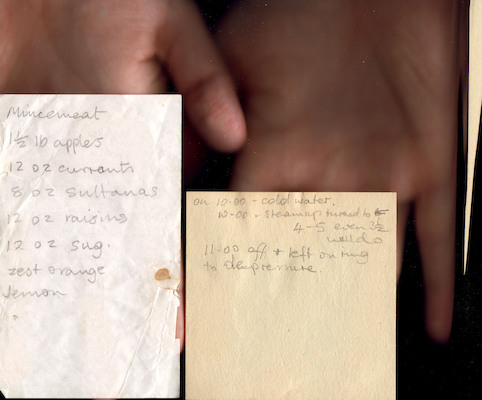 Mincemeat
1½ lb apples
12 oz currants
8 oz sultanas
12 oz raisins
12 oz sug.
zest orange
lemon
on 10.00 - cold water.
10-00 - steam up turned to
4-5 even 3½
will do
11-00 off + left on ring
to depressurise